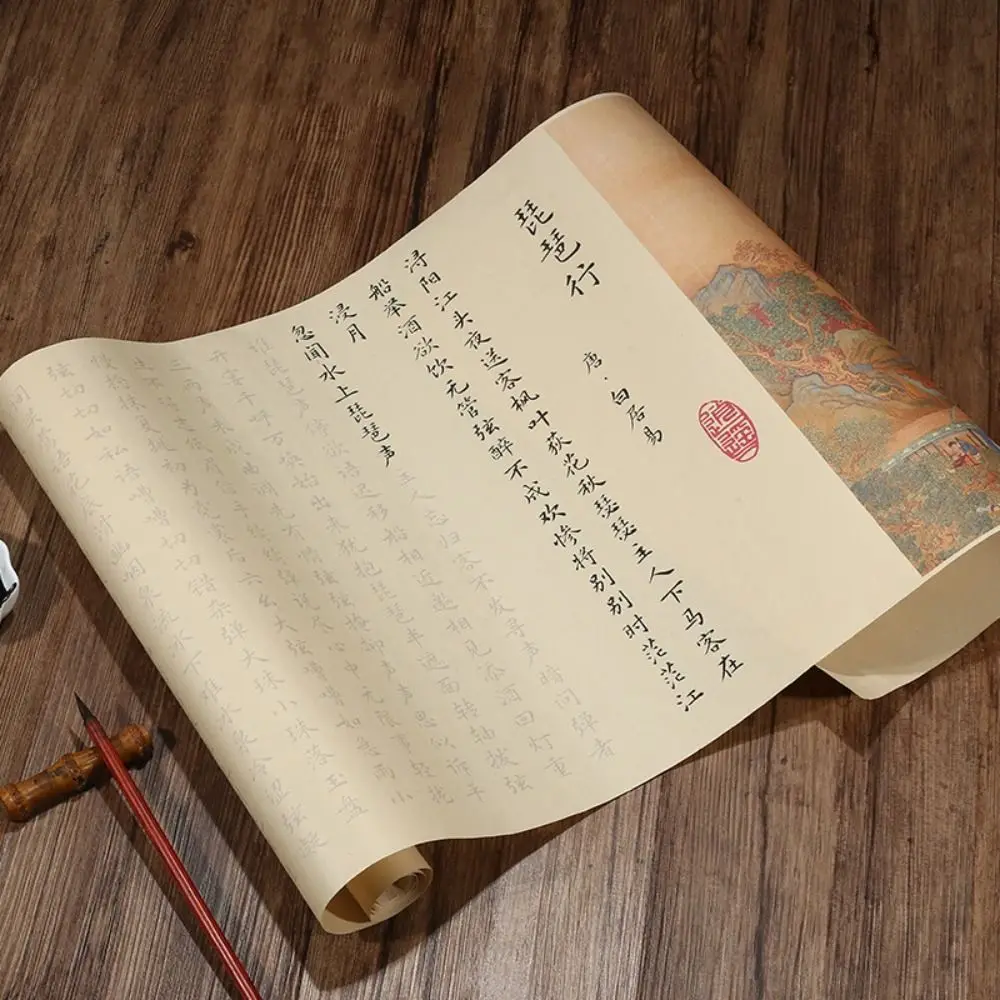 琵琶行
唐·白居易
浔阳江头夜送客枫叶荻花秋瑟瑟主人下马客在
船举酒欲饮无管弦醉不成欢惨将别别时茫茫江
浸月
忽闻水上琵琶声主人忘归客不发寻声暗问弹者
琵琶声停欲语迟移船相近邀相见添酒回灯重
开宴千呼万唤始出来犹抱琵琶半遮面转轴拨弦
三两声未成曲调先有情弦弦掩抑声声思似诉平
生不得志低眉信手续续弹说尽心中无限事轻拢
慢捻抹复挑初为霓裳后六幺大弦嘈嘈如急雨小
弦切切如私语嘈嘈切切错杂弹大珠小珠落玉盘
间关莺语花底滑幽咽泉流冰下难冰泉冷涩弦凝